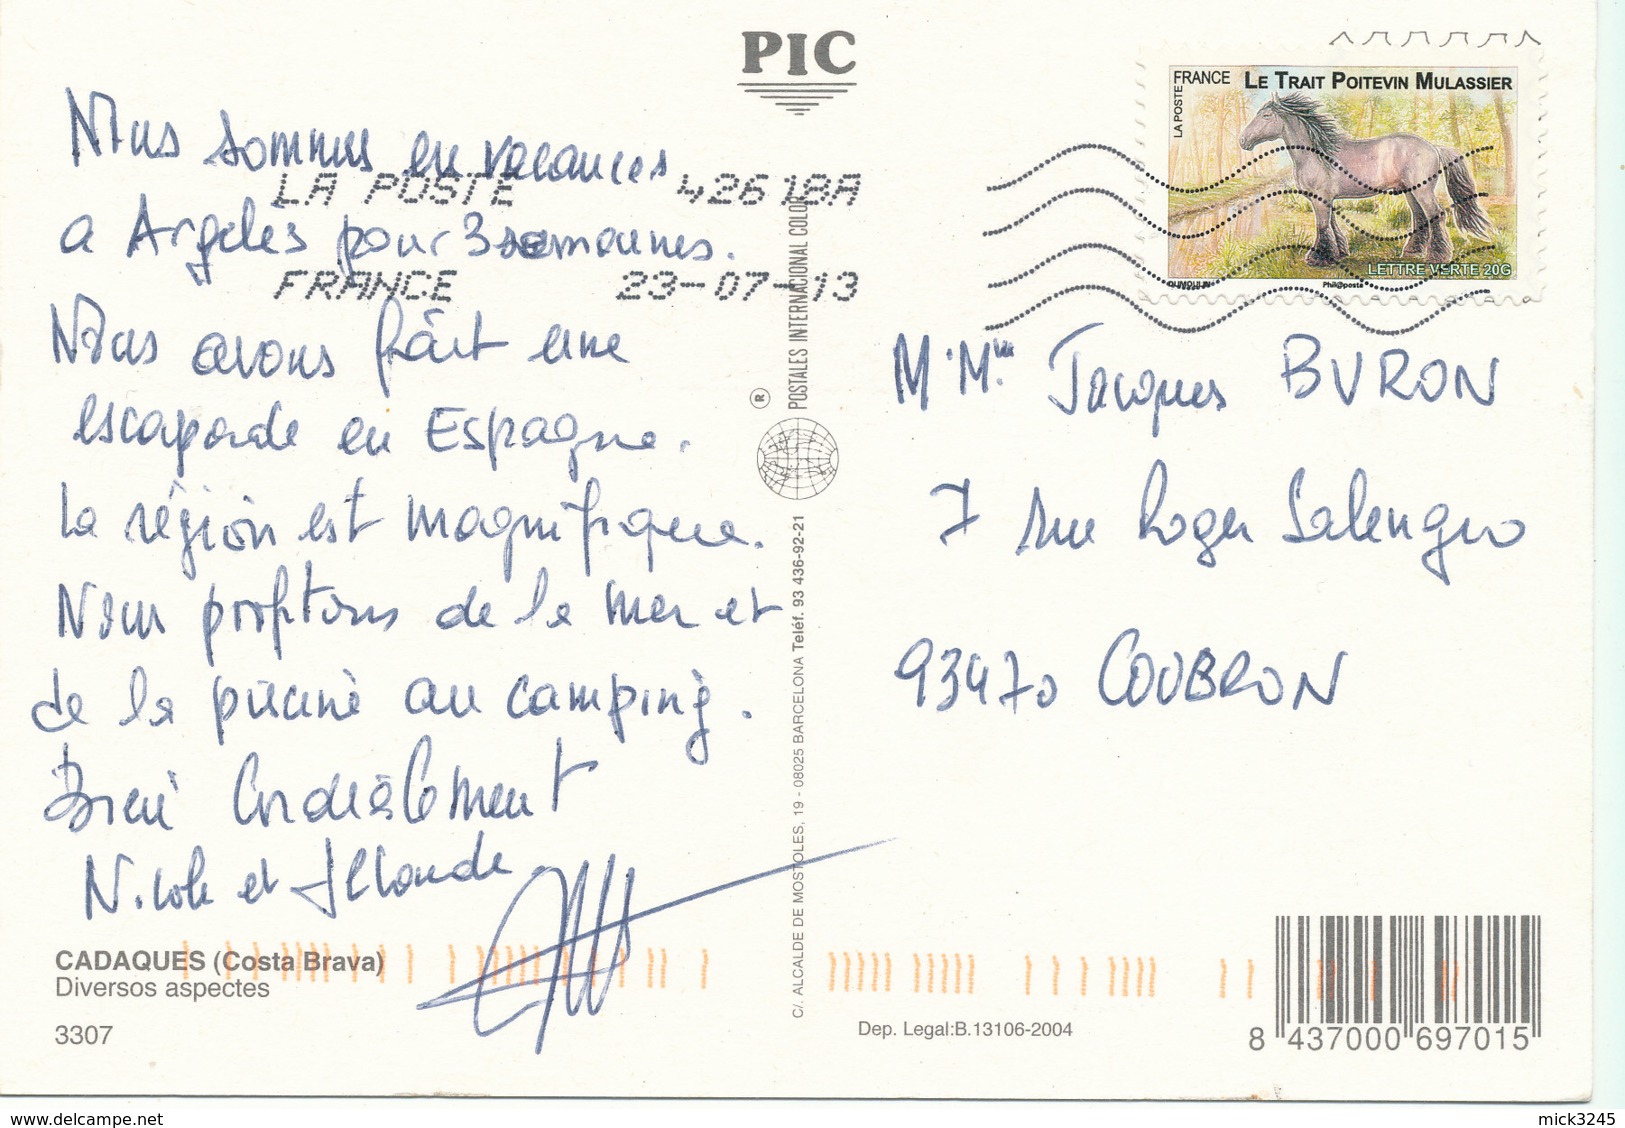 PIC
FRANCE LE TRAIT POITEVIN MULASSIER
LA POSTE
LETTRE VERTE 20G
Phil@poste
LA POSTE 42618A
FRANCE 23-07-13
Nous sommes en vacances
a Argelès pour 3 semaines.
Nous avons fait une
escapade en Espagne.
La région est magnifique.
Nous profitons de la mer et
de la piscine au camping.
Bien Cordialement
Nicole et
M. Mme Jacques BURON
7 rue Roger Salengro
93470 COUBRON
® POSTALES INTERNACIONAL COLOR
C/. ALCALDE DE MOSTOLES, 19 - 08025 BARCELONA Teléf. 93 436-92-21
CADAQUES (Costa Brava)
Diversos aspectes
3307
Dep. Legal:B.13106-2004
8 437000 697015
delcampe.net
mick3245